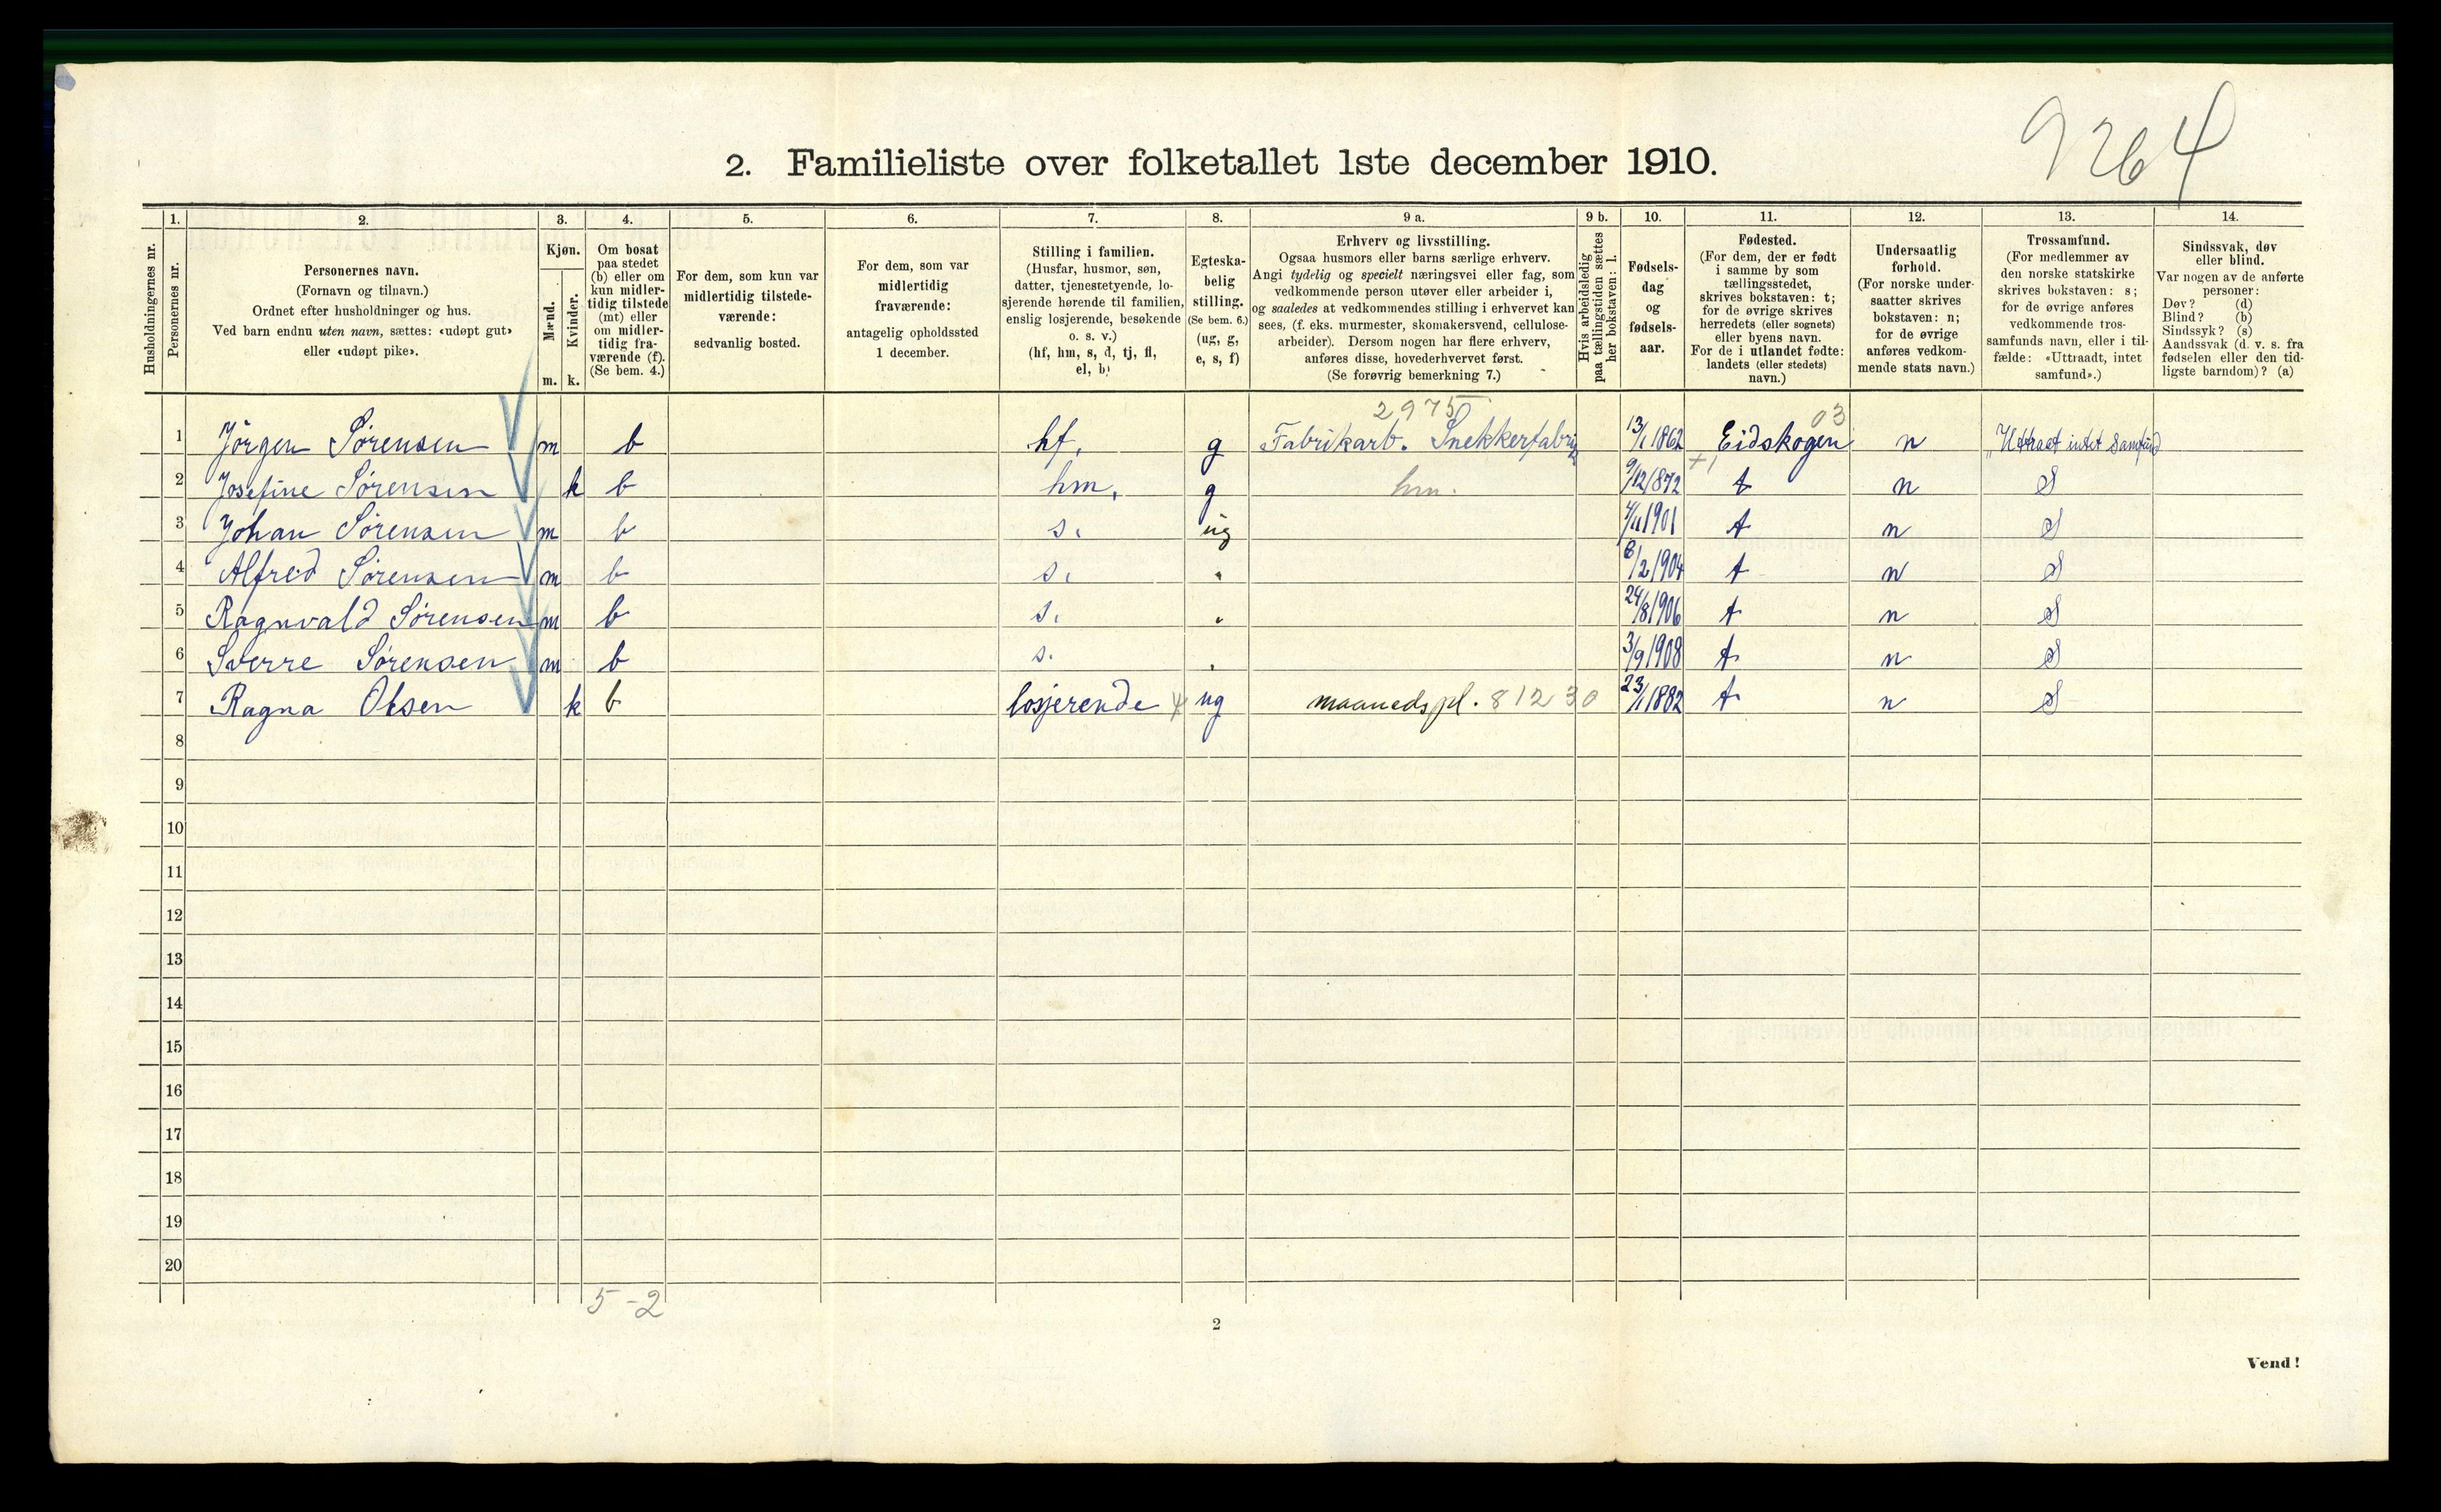 9264
2. Familieliste over folketallet 1ste december 1910.
1. 2. 3. 4. 5. 6. 7. 8. 9 a. 9 b. 10. 11. 12. 13. 14.
Husholdningernes nr.
Personernes nr.
Personernes navn.
(Fornavn og tilnavn.)
Ordnet efter husholdninger og hus.
Ved barn endnu uten navn, sættes: «udøpt gut»
eller «udøpt pike».
Kjøn.
Mænd.
Kvinder.
m. k.
Om bosat
paa stedet
(b) eller om
kun midler-
tidig tilstede
(mt) eller
om midler-
tidig fra-
værende (f).
(Se bem. 4.)
For dem, som kun var
midlertidig tilstede-
værende:
sedvanlig bosted.
For dem, som var
midlertidig
fraværende:
antagelig opholdssted
1 december.
Stilling i familien.
(Husfar, husmor, søn,
datter, tjenestetyende, lo-
sjerende hørende til familien,
enslig losjerende, besøkende
o. s. v.)
(hf, hm, s, d, tj, fl,
el, b)
Egteska-
belig
stilling.
(Se bem. 6.)
(ug, g,
e, s, f)
Erhverv og livsstilling.
Ogsaa husmors eller barns særlige erhverv.
Angi tydelig og specielt næringsvei eller fag, som
vedkommende person utøver eller arbeider i,
og saaledes at vedkommendes stilling i erhvervet kan
sees, (f. eks. murmester, skomakersvend, cellulose-
arbeider). Dersom nogen har flere erhverv,
anføres disse, hovederhvervet først.
(Se forøvrig bemerkning 7.)
Hvis arbeidsledig
paa tællingstiden sættes
her bokstaven: l.
Fødsels-
dag
og
fødsels-
aar.
Fødested.
(For dem, der er født
i samme by som
tællingsstedet,
skrives bokstaven: t;
for de øvrige skrives
herredets (eller sognets)
eller byens navn.
For de i utlandet fødte:
landets (eller stedets)
navn.)
Undersaatlig
forhold.
(For norske under-
saatter skrives
bokstaven: n;
for de øvrige
anføres vedkom-
mende stats navn.)
Trossamfund.
(For medlemmer av
den norske statskirke
skrives bokstaven: s;
for de øvrige anføres
vedkommende tros-
samfunds navn, eller i til-
fælde: «Uttraadt, intet
samfund».)
Sindssvak, døv
eller blind.
Var nogen av de anførte
personer:
Døv? (d)
Blind? (b)
Sindssyk? (s)
Aandssvak (d. v. s. fra
fødselen eller den tid-
ligste barndom)? (a)
2975 03
1 Jörgen Sørensen m b hf. g Fabrikarb. Snekkerfabrik 13/1 1862 Eidskogen n "Uttraat intet Samfund
2 Josefine Sørensen k b hm. g hm. 9/12 1872 t n S
3 Johan Sørensen m b s. ug 4/11 1901 t n S
4 Alfred Sørensen m b s. " 8/2 1904 t n S
5 Ragnvald Sørensen m b s. " 24/8 1906 t n S
6 Sverre Sørensen m b s. " 3/9 1908 t n S
7 Ragna Olsen k b losjerende ug maanedspl. 81230 23/1 1882 t n S
8
9
10
11
12
13
14
15
16
17
18
19
20
5-2
2
Vend!